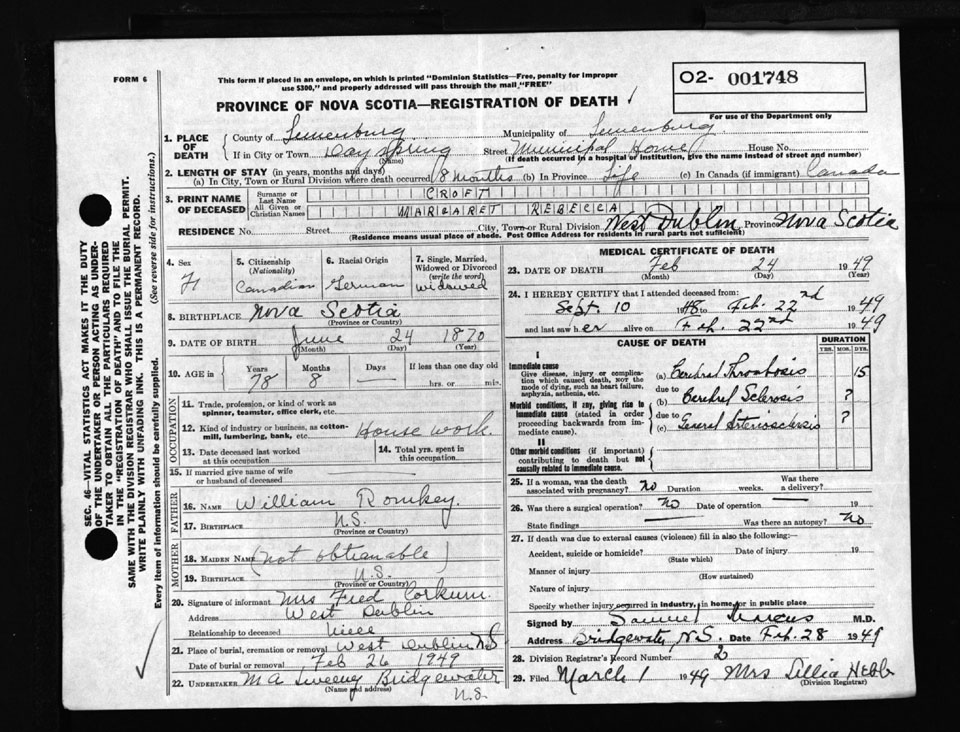 FORM 6
This form if placed in an envelope, on which is printed "Dominion Statistics—Free, penalty for improper
use $300," and properly addressed will pass through the mail, "FREE"
O2- 001748
For use of the Department only
PROVINCE OF NOVA SCOTIA—REGISTRATION OF DEATH ✓
1. PLACE OF DEATH
County of Lunenburg Municipality of Lunenburg
If in City or Town Dayspring (Name) Street Municipal Home House No.
(If death occurred in a hospital or institution, give the name instead of street and number)
2. LENGTH OF STAY (in years, months and days)
(a) In City, Town or Rural Division where death occurred 8 months (b) In Province Life (c) In Canada (if immigrant) Canada
3. PRINT NAME OF DECEASED
Surname or Last Name CROFT
All Given or Christian Names MARGARET REBECCA
RESIDENCE No. Street City, Town or Rural Division West Dublin Province Nova Scotia
(Residence means usual place of abode. Post Office Address for residents in rural parts not sufficient)
4. Sex F
5. Citizenship (Nationality) Canadian
6. Racial Origin German
7. Single, Married, Widowed or Divorced (write the word) widowed
8. BIRTHPLACE Nova Scotia
(Province or Country)
9. DATE OF BIRTH June 24 1870
(Month) (Day) (Year)
10. AGE in Years 78 Months 8 Days — If less than one day old
hrs. or min.
OCCUPATION
11. Trade, profession, or kind of work as
spinner, teamster, office clerk, etc.
12. Kind of industry or business, as cotton-
mill, lumbering, bank, etc. House work.
13. Date deceased last worked at this occupation
14. Total yrs. spent in this occupation
15. If married give name of wife
or husband of deceased
FATHER
16. NAME William Romkey.
17. BIRTHPLACE N.S.
(Province or Country)
MOTHER
18. MAIDEN NAME (not obtianable)
19. BIRTHPLACE N.S.
(Province or Country)
20. Signature of informant Mrs Fred Corkum.
Address West Dublin
Relationship to deceased niece
21. Place of burial, cremation or removal West Dublin N.S
Date of burial or removal Feb 26 1949
22. UNDERTAKER M A Sweeny Bridgewater
(Name and address) N.S.
MEDICAL CERTIFICATE OF DEATH
23. DATE OF DEATH Feb 24 1949
(Month) (Day) (Year)
24. I HEREBY CERTIFY that I attended deceased from:
Sept. 10 1948 to Feb. 22nd 1949
and last saw her alive on Feb. 22nd 1949
CAUSE OF DEATH
DURATION
YRS. MOS. DYS.
I
Immediate cause
Give disease, injury or complica-
tion which caused death, NOT the
mode of dying, such as heart failure,
asphyxia, asthenia, etc.
(a) Cerebral Thrombosis 15
due to
Morbid conditions, if any, giving rise to
immediate cause (stated in order
proceeding backwards from im-
mediate cause).
(b) Cerebral Sclerosis ?
due to
(c) General Arteriosclerosis ?
II
Other morbid conditions (if important)
contributing to death but not
causally related to immediate cause.
25. If a woman, was the death
associated with pregnancy? No Duration weeks. Was there
a delivery?
26. Was there a surgical operation? No Date of operation 19
State findings Was there an autopsy? No
27. If death was due to external causes (violence) fill in also the following:
Accident, suicide or homicide? Date of injury 19
(State which)
Manner of injury
(How sustained)
Nature of injury
Specify whether injury occurred in industry, in home, or in public place
Signed by Samuel Marcus M.D.
Address Bridgewater, N.S. Date Feb. 28 1949
28. Division Registrar's Record Number 2
29. Filed March 1 1949 Mrs Lillia Hebb
(Division Registrar)
SEC. 46—VITAL STATISTICS ACT MAKES IT THE DUTY
OF THE UNDERTAKER OR PERSON ACTING AS UNDER-
TAKER TO OBTAIN ALL THE PARTICULARS REQUIRED
IN THE "REGISTRATION OF DEATH" AND TO FILE THE
SAME WITH THE DIVISION REGISTRAR WHO SHALL ISSUE THE BURIAL PERMIT.
WRITE PLAINLY WITH UNFADING INK. THIS IS A PERMANENT RECORD.
Every item of information should be carefully supplied. (See reverse side for instructions.)